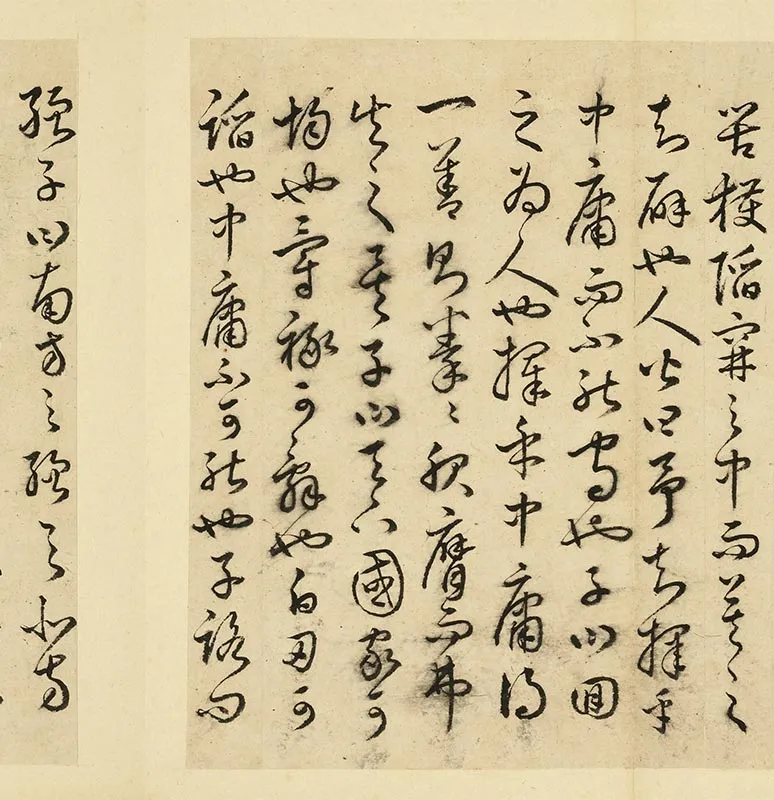 罟擭陷穽之中而莫之
知辟也人皆曰予知擇乎
中庸而不能守也子曰回
之為人也擇乎中庸得
一善則拳々服膺而弗
失之矣子曰天下國家可
均也爵祿可辭也白刃可
蹈也中庸不可能也子路問
強子曰南方之強與北方